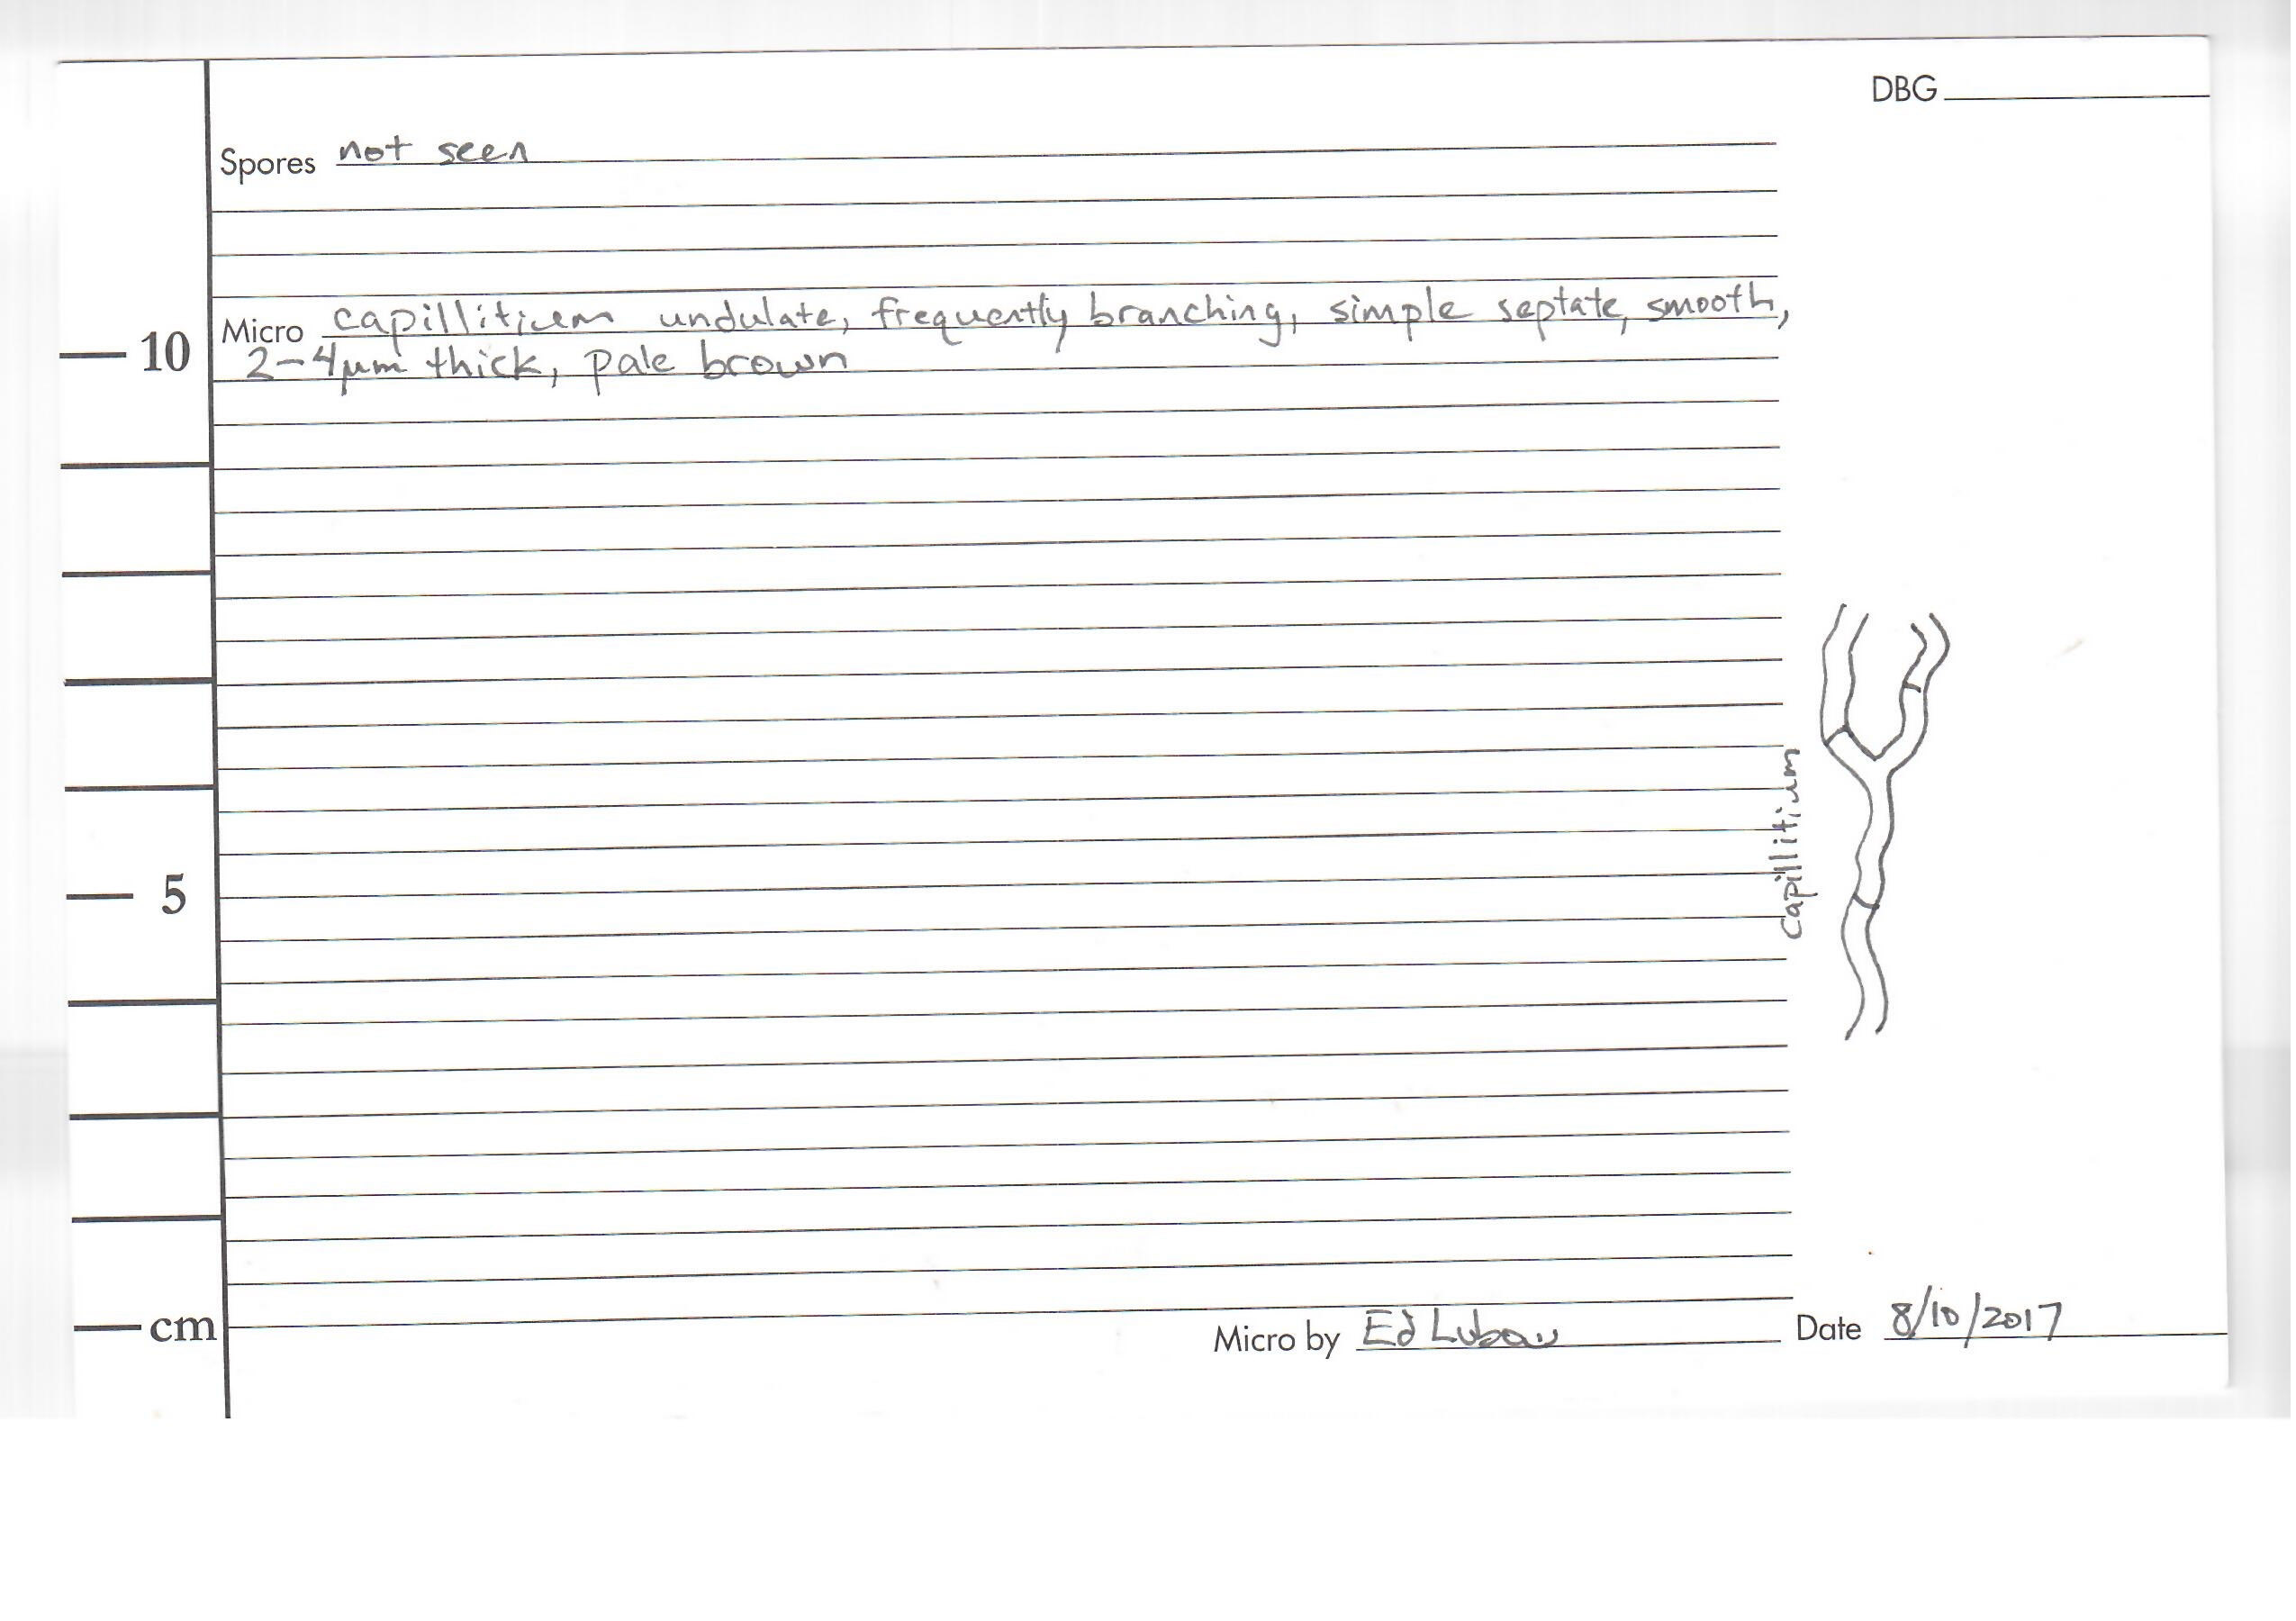 DBG
Spores not seen
Micro capillitium undulate, frequently branching, simple septate, smooth,
10
2-4μm thick, pale brown
capillitium
5
cm
Micro by Ed Lubow Date 8/10/2017